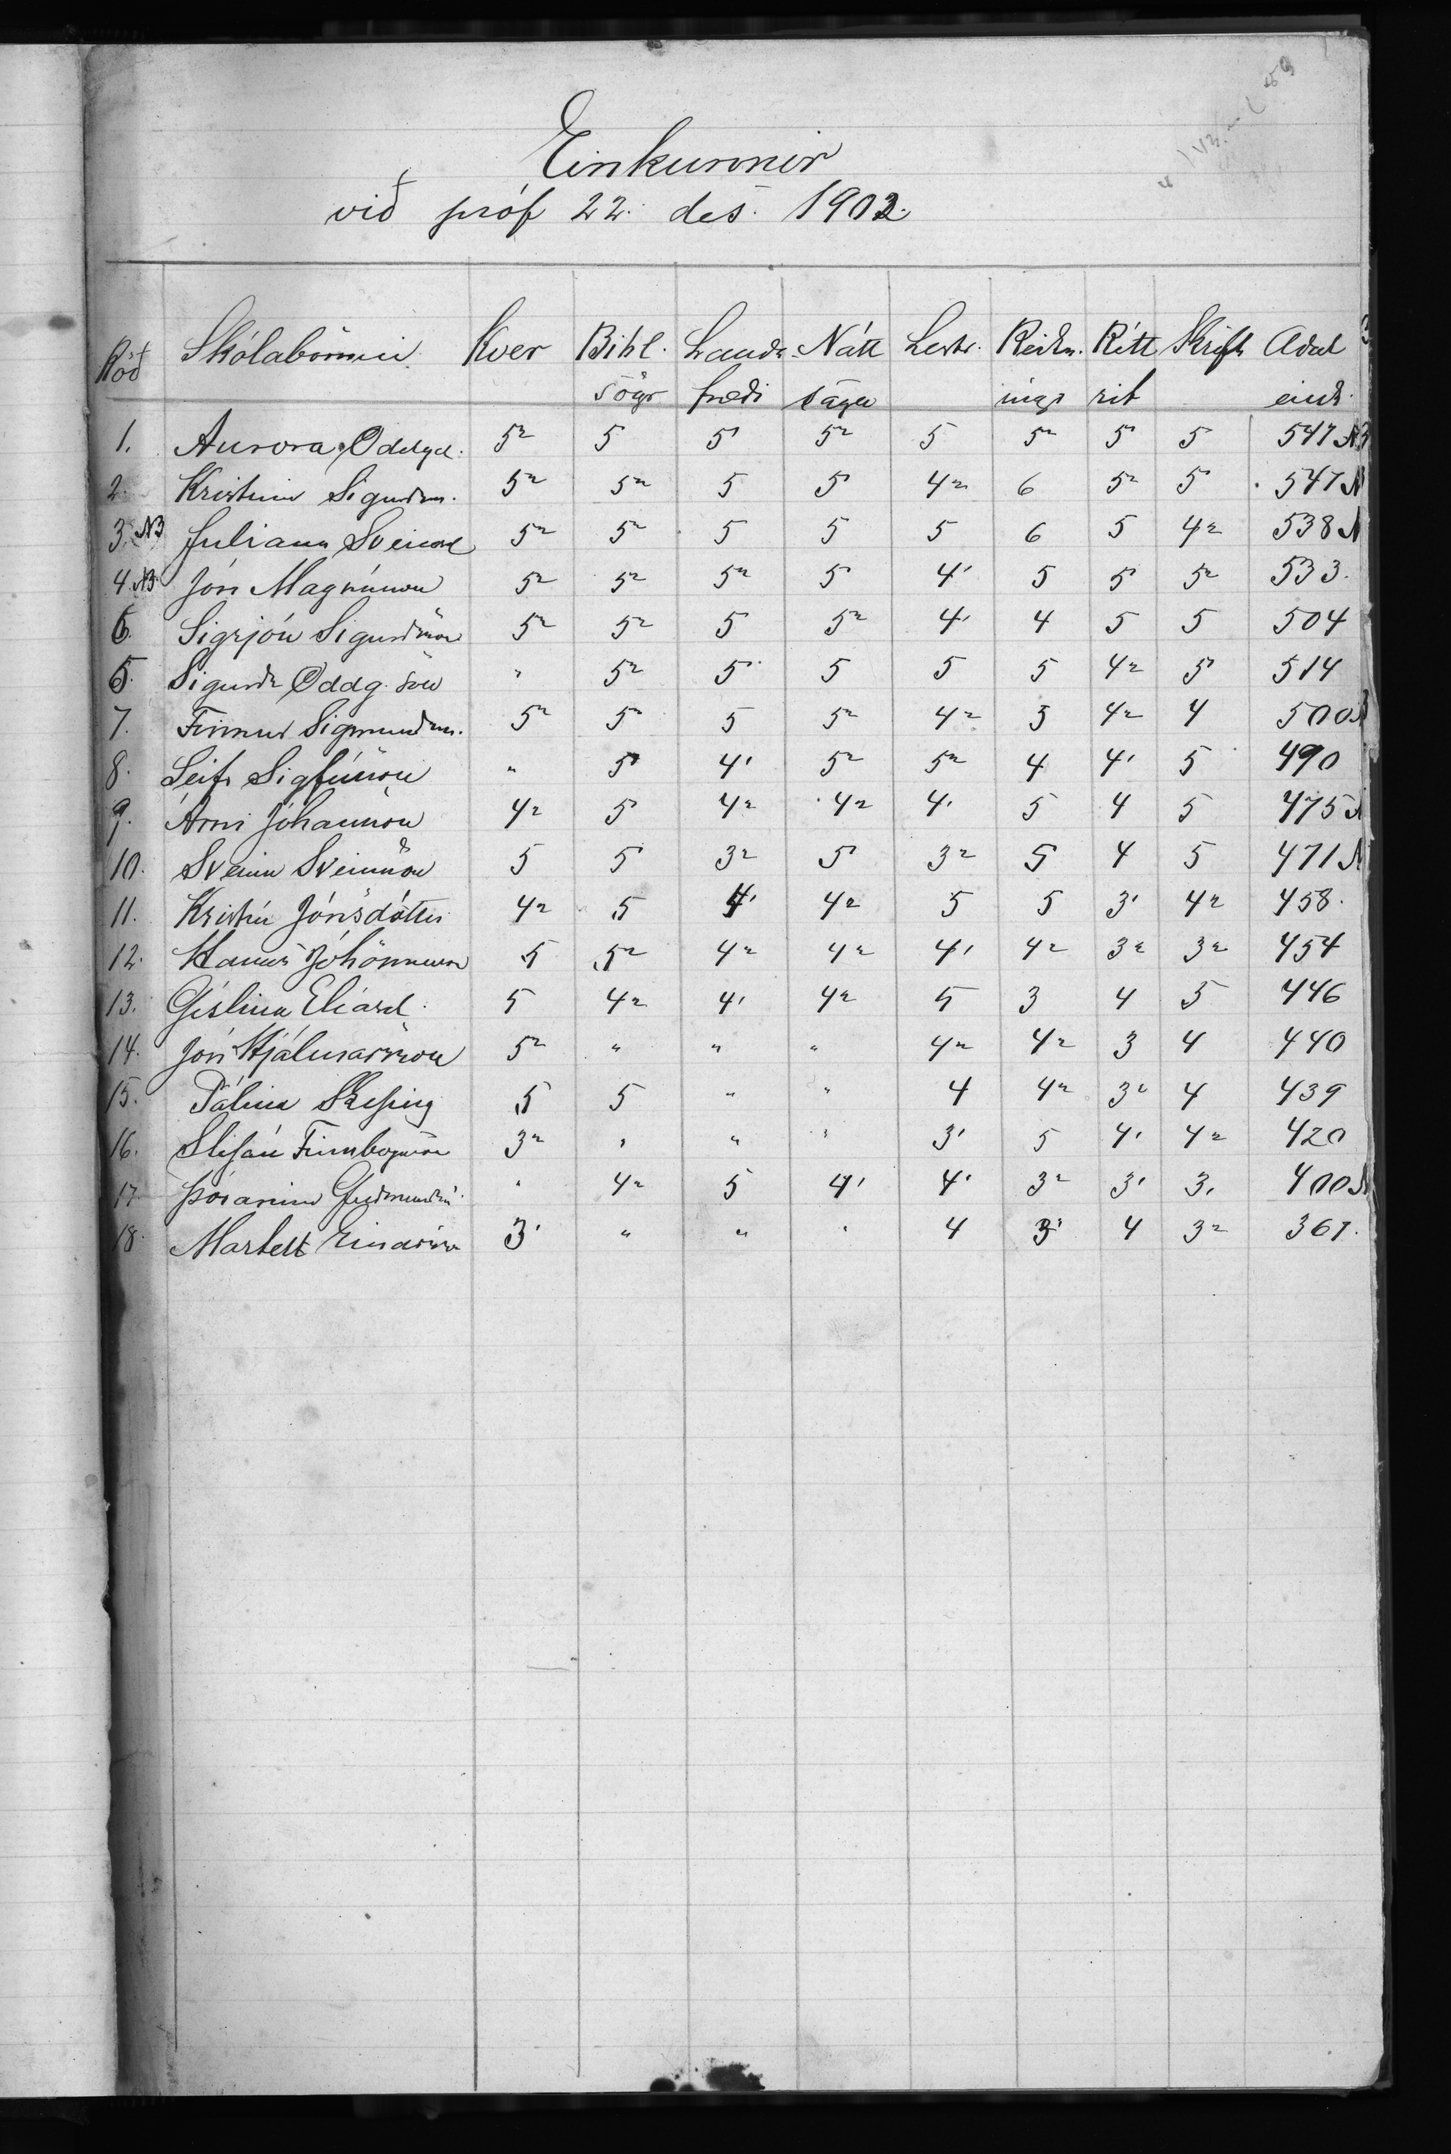 Einkunnir
við próf 22. des. 1902.
Röð Skólabörnin. Kver Bibl. Landa Nátt Lestr. Reikn. Rétt Skrift Aðal
sögr fræði saga ings rit eink.
1. Aurora Oddgd. 52 5 5 52 5 52 5 5 547 NB
2. Kristinn Sigurðss. 52 52 5 5 42 6 52 5 547 N
3. NB Juliana Sveinsd 52 5 5 5 5 6 5 42 538 N
4. NB Jón Magnússon 52 52 52 5 4' 5 5 52 533.
6. Sigrjón Sigurðsson 52 52 5 52 4' 4 5 5 504
5. Sigurðr Oddg. son " 52 5 5 5 5 42 5 514
7. Finnur Sigmundss. 52 5 5 52 42 3 42 4 500 N
8. Leifr Sigfússon " 5 4' 52 52 4 4' 5 490
9. Árni Jóhannsson 42 5 42 42 4' 5 4 5 475 N
10. Sveinn Sveinsson 5 5 32 5 32 5 4 5 471 N
11. Kristín Jónsdóttir 42 5 4' 42 5 5 3' 42 458.
12. Hannes Jóhönnuson 5 52 42 42 4' 42 32 32 454
13. Gíslina Elíasd. 5 42 4' 42 5 3 4 5 446
14. Jón Hjálmarsson 52 " " " 42 42 3 4 440
15. Pálina Scheving 5 5 " " 4 42 32 4 439
16. Stefán Finnbogason 32 " " " 3' 5 4' 42 420
17. Þórarinn Guðmundss. " 42 5 4' 4' 32 3' 3' 400 N
18. Marteit Einarsson 3' " " " 4 3' 4 32 361.